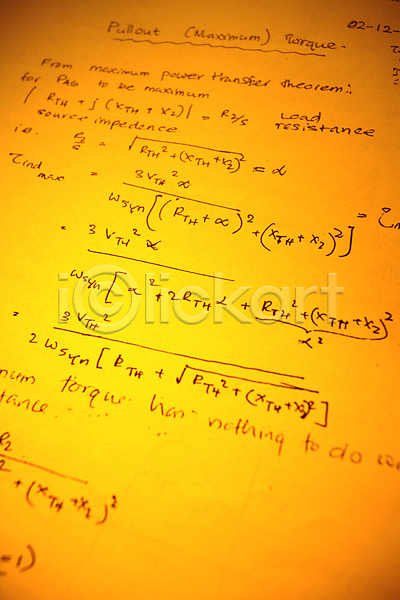 02-12-
Pullout (Maximum) Torque-
From maximum power transfer theorem:,
for PAG to be maximum
| RTH + j (XTH + X2)| = R2/s Load
source impedence resistance
i.e. R2/s = √RTH² + (XTH + X2)² = α
τind max = 3 VTH² α / ωsyn[(RTH + α)² + (XTH + X2)²] =
= 3 VTH² α / ωsyn[α² + 2RTH α + RTH² + (XTH + X2)²
α²
= 3 VTH² / 2 ωsyn [RTH + √RTH² + (XTH + X2)²]
num torque has nothing to do
tance
R2
2 + (XTH + X2)²
=1)
i©lickart